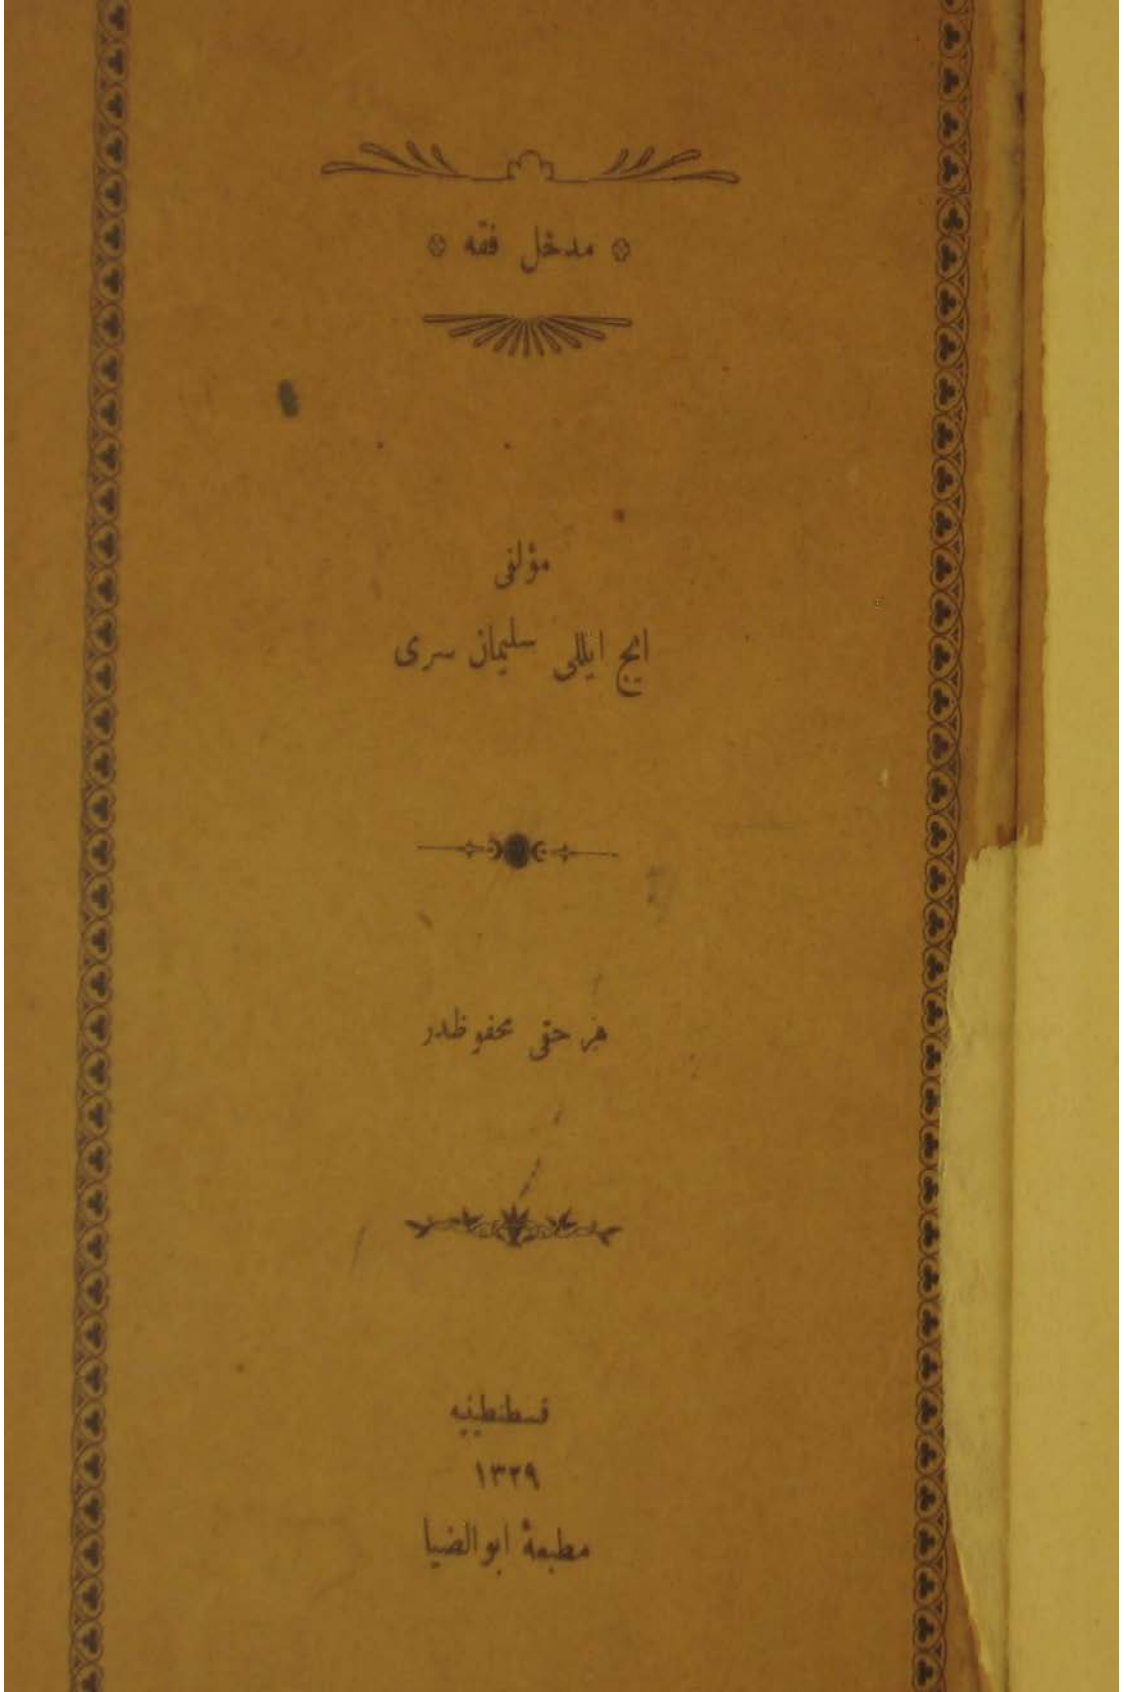 مدخل فقه
مؤلفی
ایچ ایللی سلیمان سری
هر حقی محفوظدر
قسطنطینیه
١٣٢٩
مطبعهٔ ابوالضیا